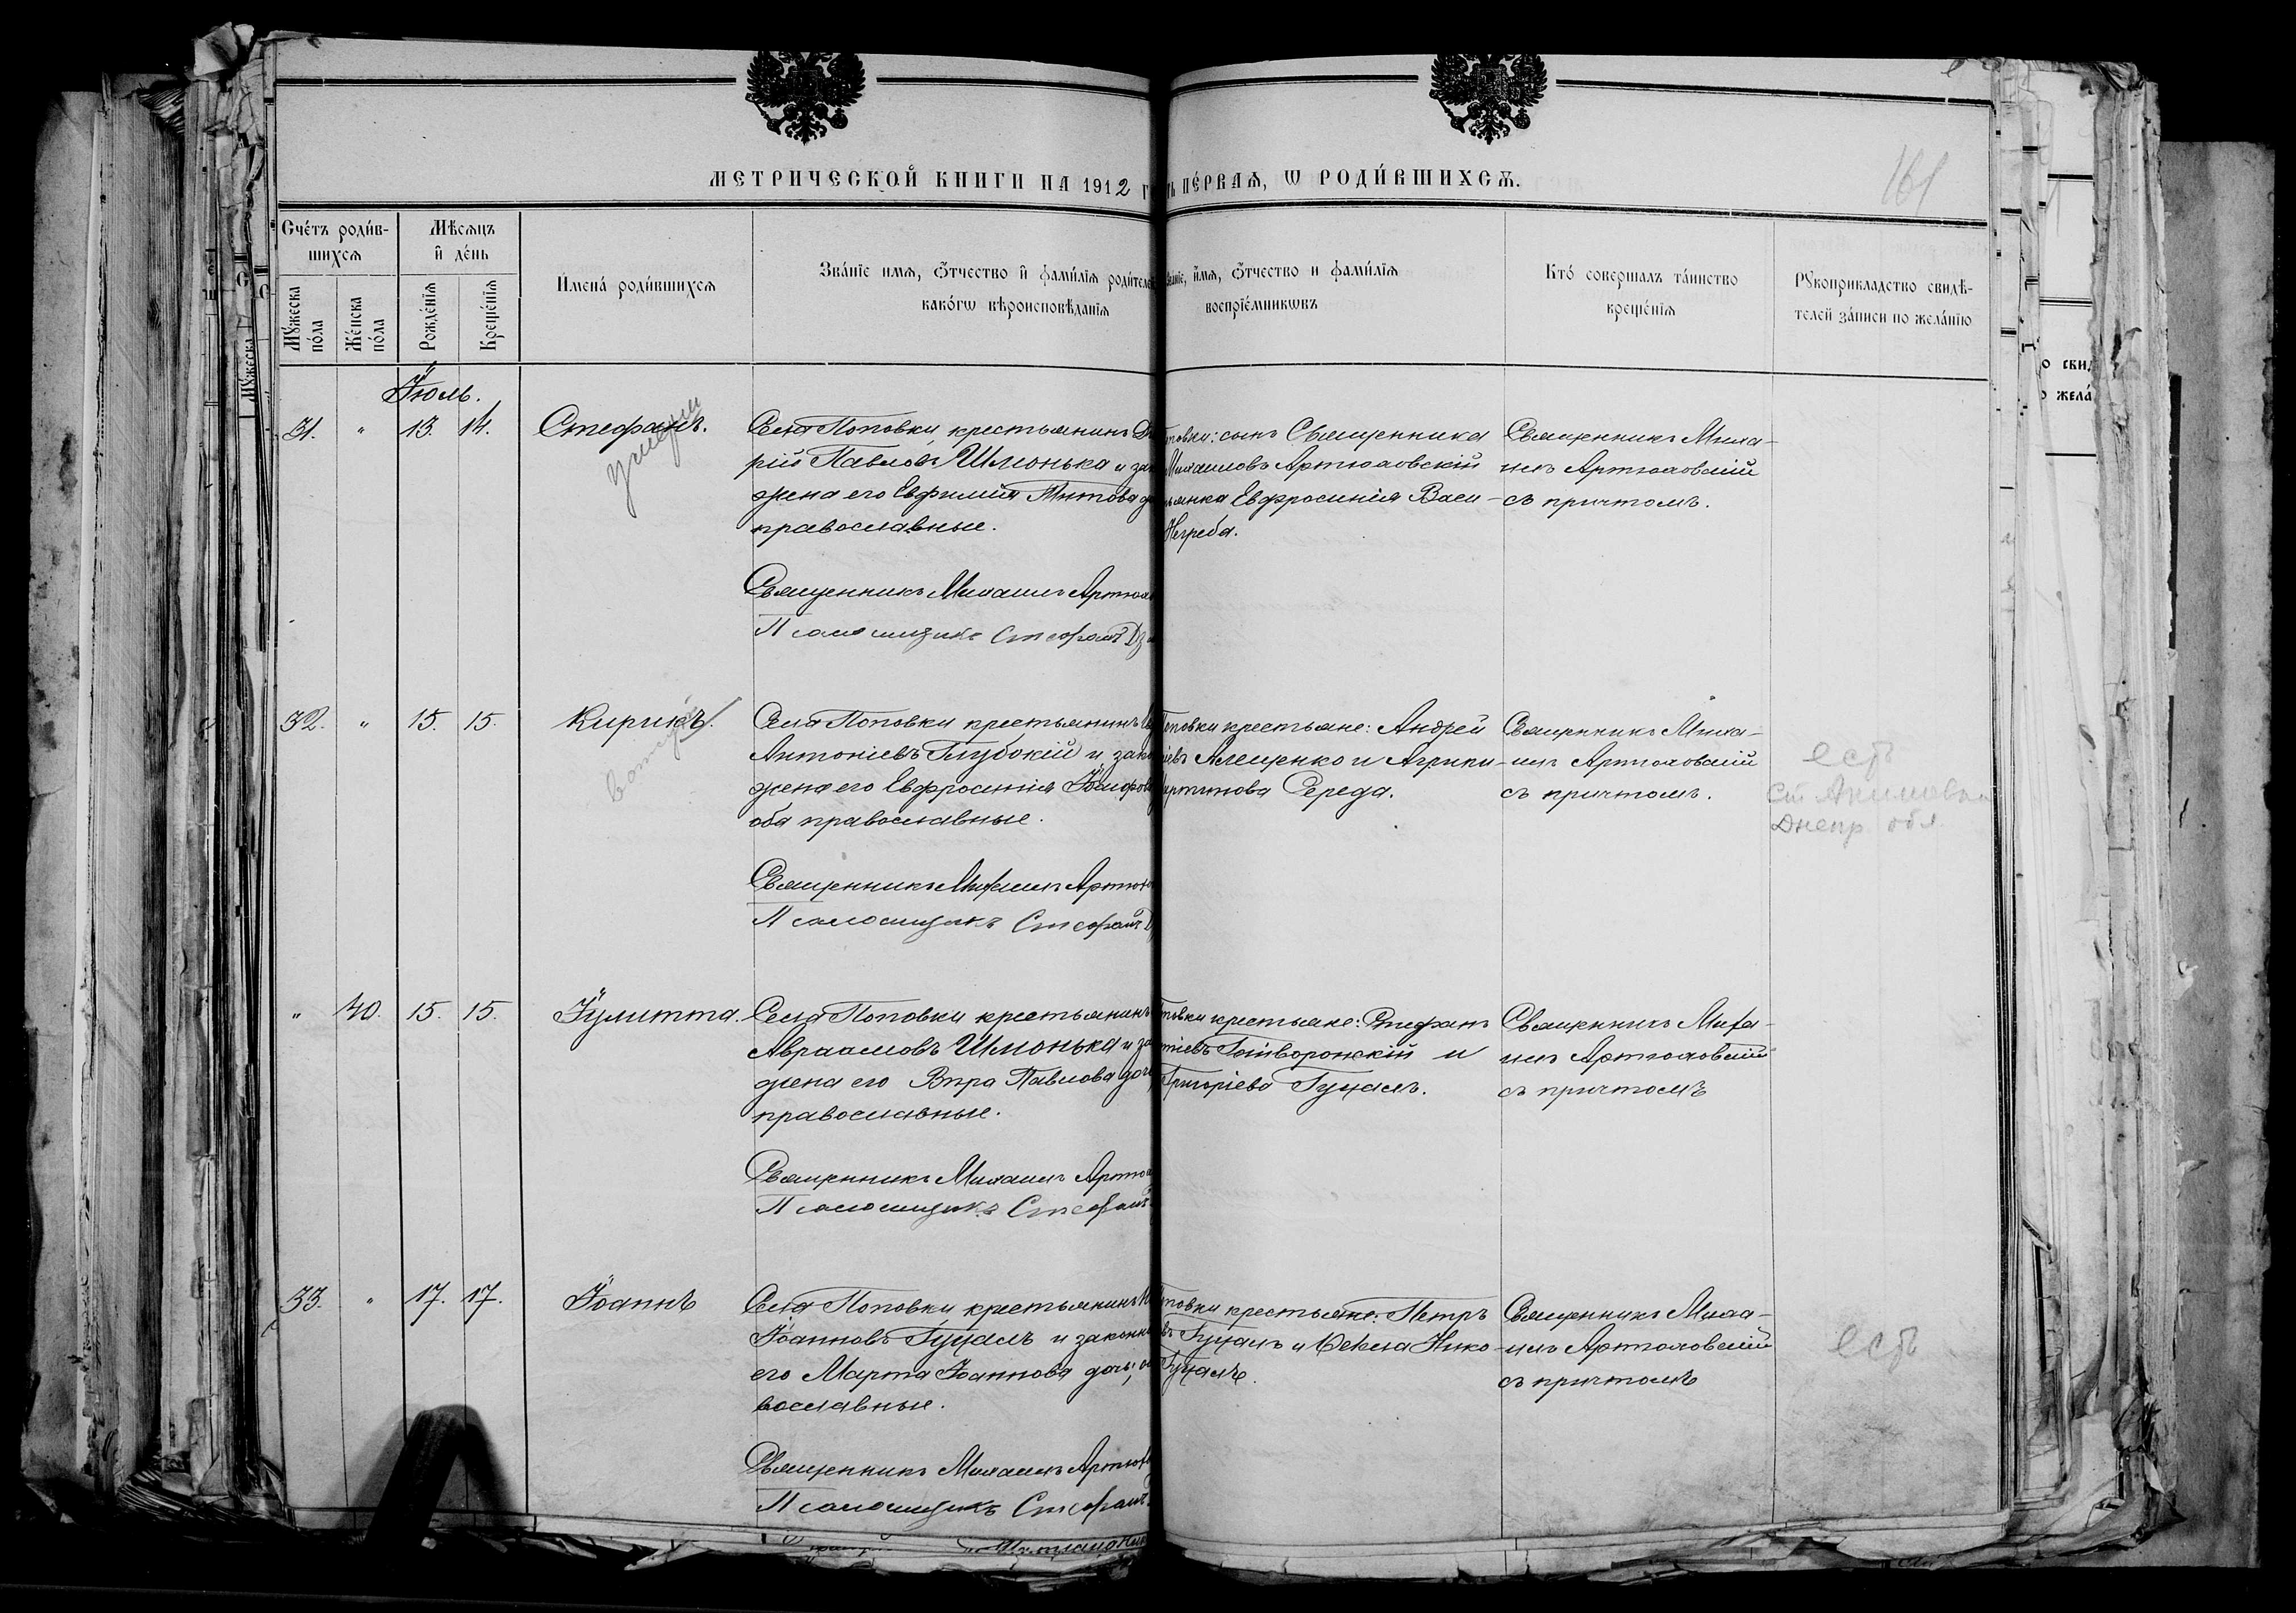 МЕТРИЧЕСКОЙ КНИГИ НА 1912
ПЕ́РВАѦ, Ѡ РОДИ́ВШИХСѦ.
161
Сче́тъ роди́в-
шихсѧ
Мѣсѧцъ
и де́нь
Му́жеска
по́ла
Же́нска
по́ла
Рожде́нїѧ
Креще́нїѧ
Имена́ роди́вшихсѧ
Зва́нїе имѧ, ѻ́тчество и фами́лїѧ роди́телей
како́гѡ вѣроисповѣ́данїѧ
и́мѧ, ѻ́тчество и фами́лїѧ
воспрїе́мникѡвъ
Кто́ соверша́лъ та́инство
креще́нїѧ
Рꙋкоприкладство свидѣ́-
телей за́писи по жела́нїю
Іюль.
31. " 13. 14. Стефанъ.
умерш
Села Поповки, крестьянинъ
рій Павловъ Шмонька и
жена его Евфимія Титова
православные.
Священникъ Михаилъ
Псаломщикъ Стефанъ
сынъ Священника
Михаиловъ Артюховскій
Евфросинія Васи-
Негреба.
Священникъ Миха-
илъ Артюховскій
съ причтомъ.
32. " 15. 15. Кирикъ.
Села Поповки крестьянинъ
Антоніевъ Глубокій и
жена его Евфросинія
оба православные.
Священникъ Михаилъ
Псаломщикъ Стефанъ
крестьяне: Андрей
Алещенко и Агрипи-
Середа.
Священникъ Миха-
илъ Артюховскій
съ причтомъ.
есть
ст Акимовка
Днепр обл
" 40. 15. 15. Іулитта.
Села Поповки крестьянинъ
Авраамовъ Шмонька и
жена его Вѣра Павлова
православные.
Священникъ Михаилъ
Псаломщикъ Стефанъ
крестьяне: Стефанъ
Гайворонскій и
Григоріева Гуцалъ.
Священникъ Миха-
илъ Артюховскій
съ причтомъ
33. " 17. 17. Іоаннъ
Села Поповки крестьянинъ
Іоанновъ Гуцалъ и
его Марта Іоаннова дочь,
вославные.
Священникъ Михаилъ
Псаломщикъ Стефанъ
крестьяне: Петръ
Гуцалъ и Ѳекла Нико-
Гуцалъ.
Священникъ Миха-
илъ Артюховскій
съ причтомъ
есть